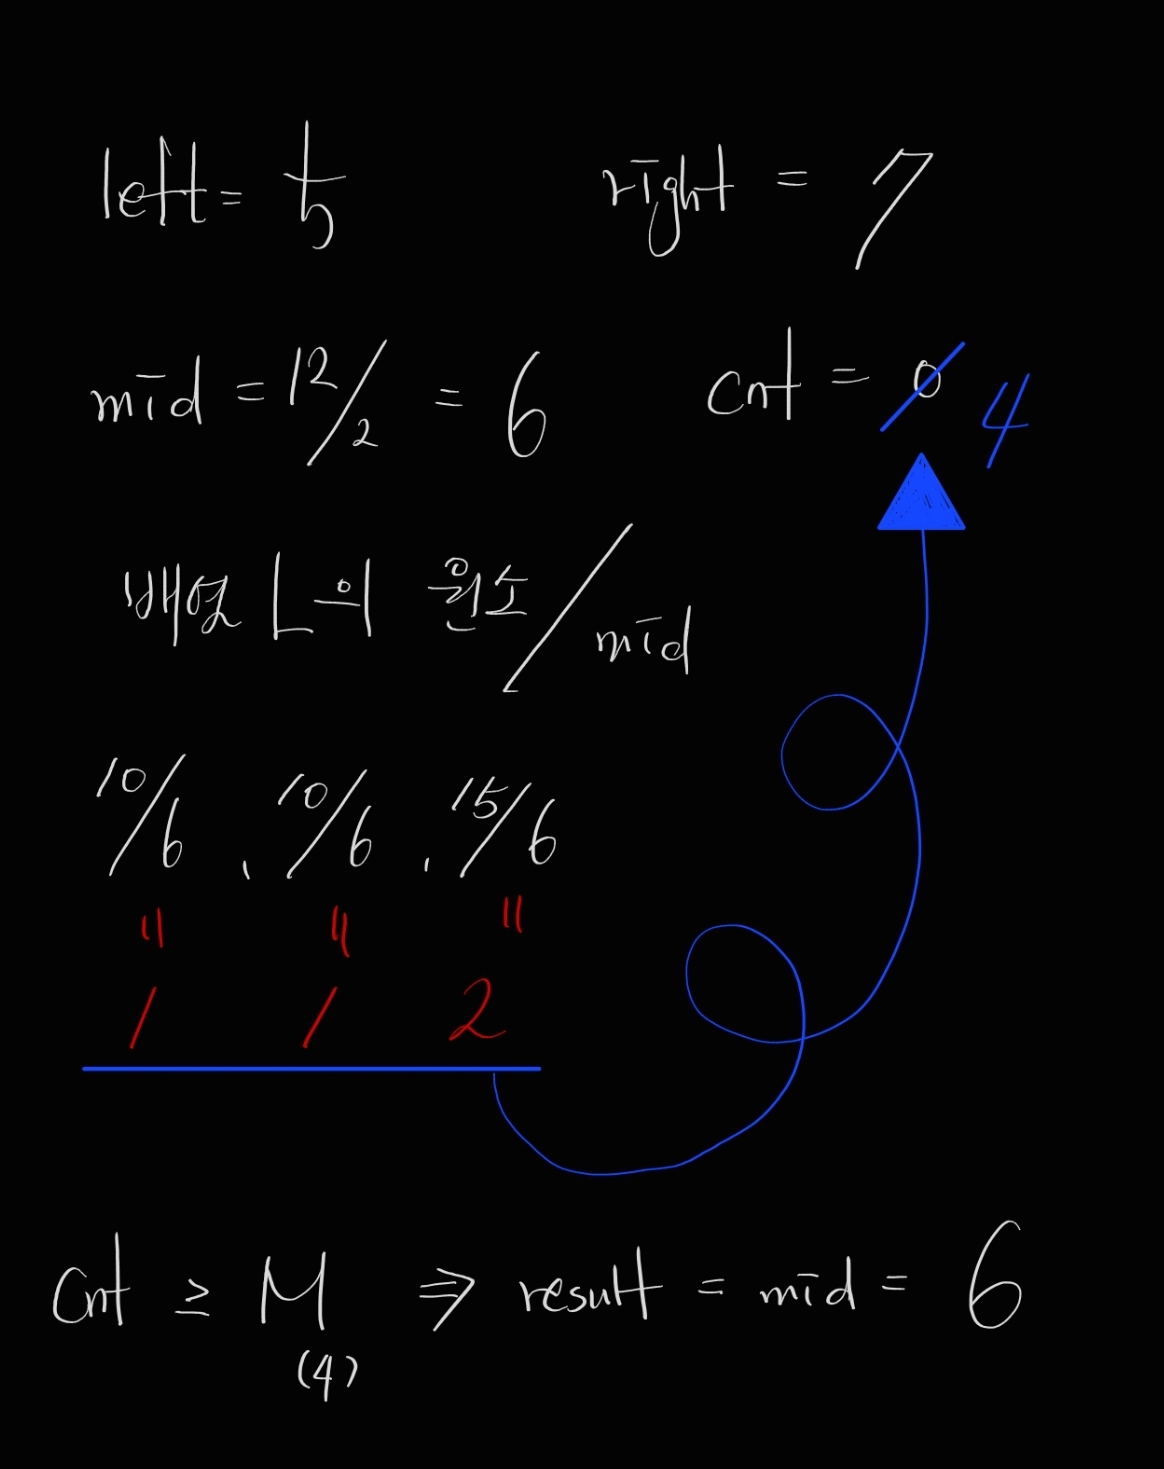 left = 5 right = 7
mid = 12/2 = 6 cnt = 0 4
배열 L의 원소/mid
10/6, 10/6, 15/6
= = =
1 1 2
Cnt ≥ M ⇒ result = mid = 6
(4)